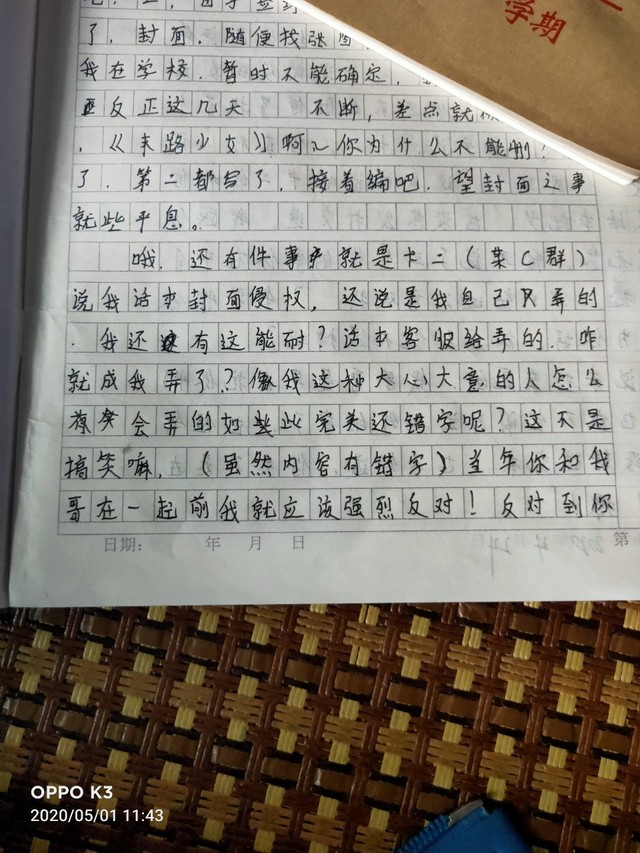 学期
了．封面．随便找张图
我在学校．暂时不能确定，
反正这几天 不断，差点就
．《末路少女》啊～你为什么不能删！
了．第二都写了．接着编吧．望封面之事
就些平息。
哦．还有件事 就是卡二（某C群）
说我话本封面侵权．还说是我自己P弄的
．我还 有这能耐？话本客服给弄的．咋
就成我弄了？像我这种大心大意的人怎么
会弄的如些此完美还错字呢？这不是
搞笑嘛．（虽然内容有错字）当年你和我
哥在一起前我就应该强烈反对！反对到你
日期： 年 月 日 第
OPPO K3
2020/05/01 11:43